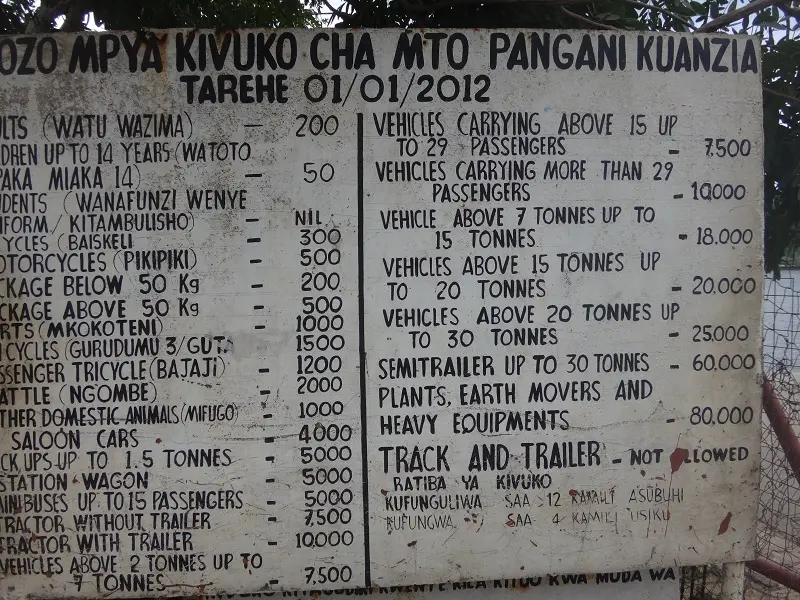 OZO MPYA KIVUKO CHA MTO PANGANI KUANZIA
TAREHE 01/01/2012
ULTS (WATU WAZIMA) - 200
DREN UP TO 14 YEARS (WATOTO
PAKA MIAKA 14) - 50
UDENTS (WANAFUNZI WENYE
IFORM/KITAMBULISHO) - NIL
YCLES (BAISKELI - 300
OTORCYCLES (PIKIPIKI) - 500
CKAGE BELOW 50 Kg - 200
CKAGE ABOVE 50 Kg - 500
RTS (MKOKOTENI) - 1000
CYCLES (GURUDUMU 3/GUTA - 1500
SSENGER TRICYCLE (BAJAJI) - 1200
ATTLE (NGOMBE) - 2000
THER DOMESTIC ANIMALS (MIFUGO) - 1000
SALOON CARS - 4000
CK UPS UP TO 1.5 TONNES - 5000
STATION WAGON - 5000
MINIBUSES UP TO 15 PASSENGERS - 5000
TRACTOR WITHOUT TRAILER - 7,500
TRACTOR WITH TRAILER - 10,000
VEHICLES ABOVE 2 TONNES UP TO
7 TONNES - 7,500
VEHICLES CARRYING ABOVE 15 UP
TO 29 PASSENGERS - 7.500
VEHICLES CARRYING MORE THAN 29
PASSENGERS - 10,000
VEHICLE ABOVE 7 TONNES UP TO
15 TONNES - 18.000
VEHICLES ABOVE 15 TONNES UP
TO 20 TONNES - 20.000
VEHICLES ABOVE 20 TONNES UP
TO 30 TONNES - 25.000
SEMITRAILER UP TO 30 TONNES - 60.000
PLANTS, EARTH MOVERS AND
HEAVY EQUIPMENTS - 80.000
TRACK AND TRAILER - NOT ALLOWED
RATIBA YA KIVUKO
KUFUNGULIWA SAA 12 KAMILI ASUBUHI
KUFUNGWA SAA 4 KAMILI USIKU
KWENYE KILA KITUO KWA MUDA WA